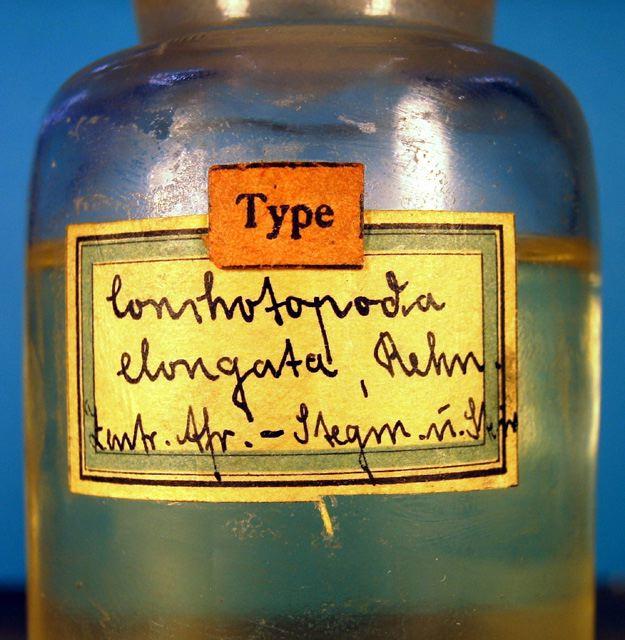 Type
Conchotopoda
elongata, Rehn.
Zentr. Afr. - Stegm. u.